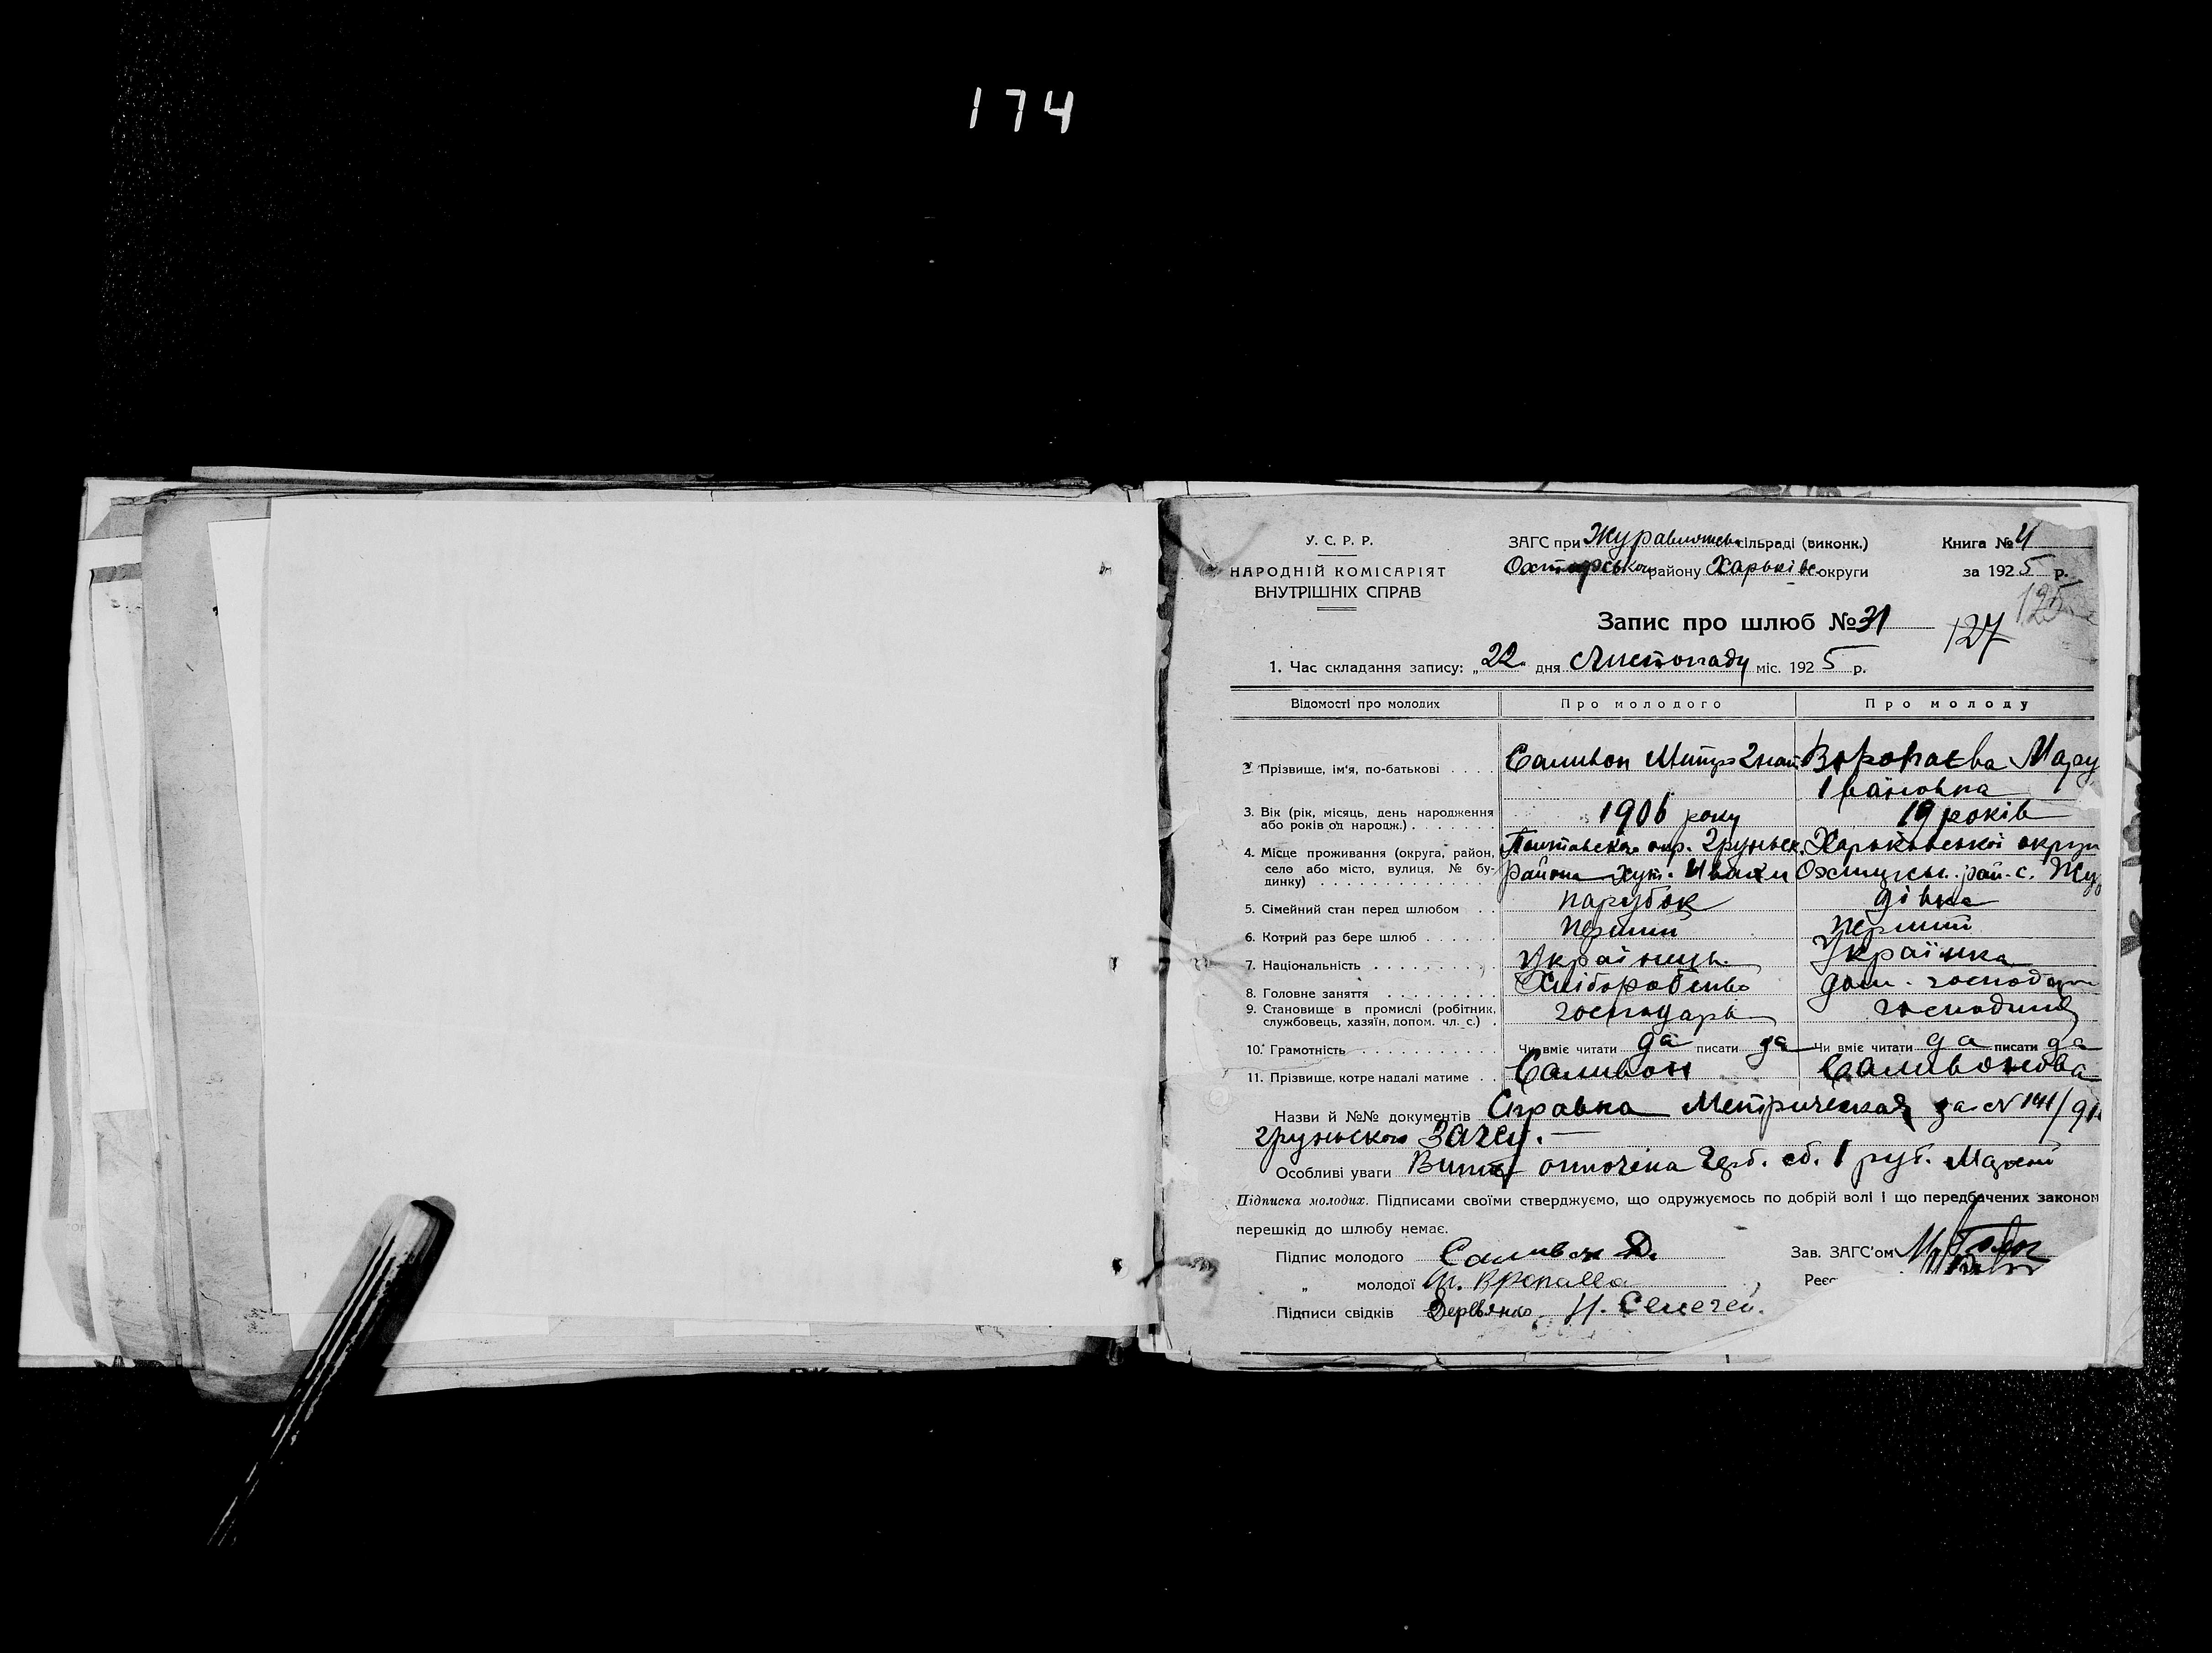 174
У. С. Р. Р.
НАРОДНІЙ КОМІСАРІЯТ
ВНУТРІШНІХ СПРАВ
ЗАГС при сільраді (виконк.)
району Харьківс округи
Книга № 4
за 1925 р.
125
Запис про шлюб № 31
127
1. Час складання запису: „22 дня Листопаду міс. 1925 р.
Відомості про молодих Про молодого Про молоду
2. Прізвище, ім'я, по-батькові . . . . Саливон Митро Гнат Воропаєва Мару
Івановна
3. Вік (рік, місяць, день народження 1906 року 19 років
або років од народж.) . . . . . . .
4. Місце проживання (округа, район, Полтавского окр. Груньск. Харьківської округи
село або місто, вулиця, № бу- района хут. рай. с. Жу
динку) . . . . . . . . . . . . . .
5. Сімейний стан перед шлюбом . . парубок дівка
6. Котрий раз бере шлюб . . . . . . перший перший
7. Національність . . . . . . . . . . Українець Українка
8. Головне заняття . . . . . . . . . Хліборобство дом. господар
9. Становище в промислі (робітник, господарь господиня
службовець, хазяїн, допом. чл. с.) .
10. Грамотність . . . . . . . . . . . . Чи вміє читати да писати да Чи вміє читати да писати да
11. Прізвище, котре надалі матиме . . Саливон Саливонова
Назви й №№ документів Справка Метрическая за №
груньского Загсу. —
Особливі уваги оплочена герб. сб. 1 руб.
Підписка молодих. Підписами своїми стверджуємо, що одружуємось по добрій волі і що передбачених законом
перешкід до шлюбу немає.
Підпис молодого Саливон Д. Зав. ЗАГС'ом
„ молодої Реєс
Підписи свідків